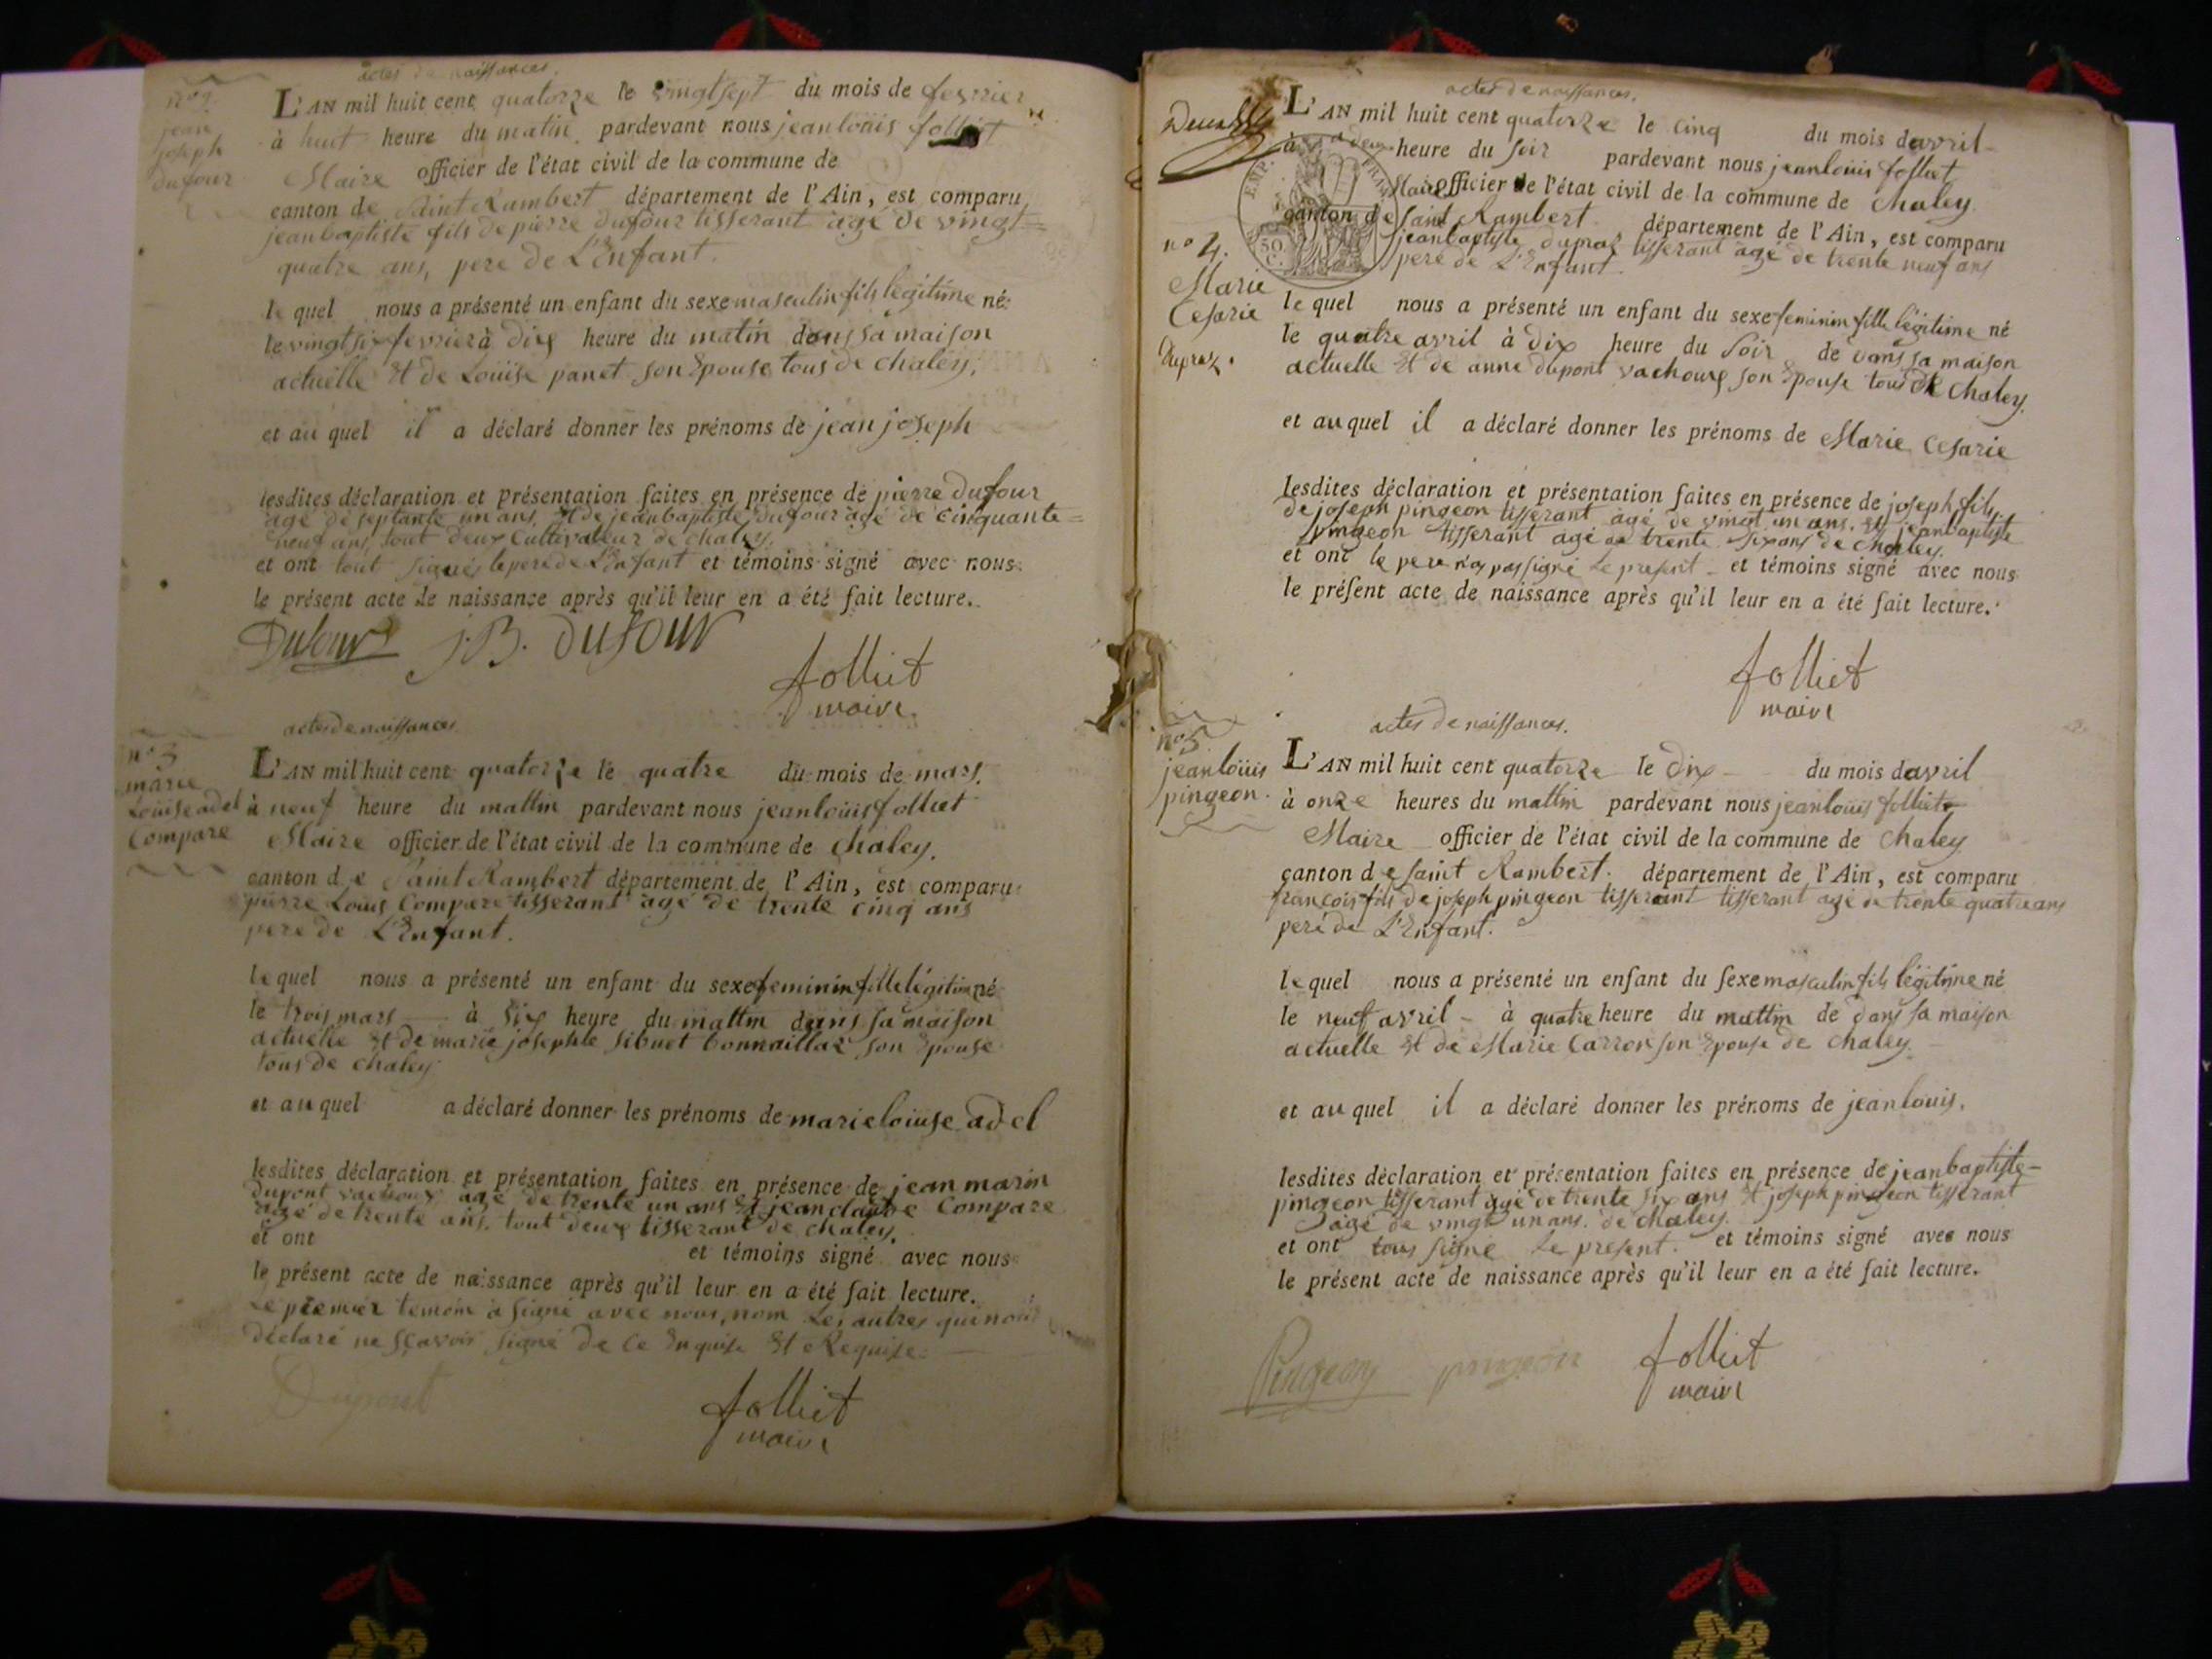 actes de naissances.
n° 2.
jean
joseph
dufour
L'AN mil huit cent quatorze le vingt sept du mois de fevrier
à huit heure du matin pardevant nous jean louis folliet
Maire officier de l'état civil de la commune de
canton de Saint Rambert département de l'Ain, est comparu
jean baptiste fils de pierre dufour tisserant agé de vingt =
quatre ans, pere de L'Enfant.
le quel nous a présenté un enfant du sexe masculin fils legitime né
le vingt six fevrier à dix heure du matin dans sa maison
actuelle Et de Louise panet son Epouse tous de chaley,
et au quel il a déclaré donner les prénoms de jean joseph
lesdites déclaration et présentation faites en présence de pierre dufour
agé de septante un ans, Et de jean baptiste dufour agé de cinquante =
neuf ans, tout deux Cultivateur de chaley,
et ont tout signés le pere de L'Enfant et témoins signé avec nous
le présent acte de naissance après qu'il leur en a été fait lecture.
Dufour J.B. DUFOUR
folliet
maire
actes de naissances
n° 3
marie
Louise adel
Compare
L'AN mil huit cent quatorze le quatre du mois de mars,
à neuf heure du mattin pardevant nous jean louis folliet
Maire officier de l'état civil de la commune de Chaley,
canton de Saint Rambert département de l'Ain, est comparu
pierre Louis Compare tisserant agé de trente cinq ans
pere de L'Enfant.
le quel nous a présenté un enfant du sexe feminin fille légitime né
le trois mars à six heure du mattin dans sa maison
actuelle Et de marie josephte Sibuet bonnaillaz son Epouse
tous de chaley
et au quel a déclaré donner les prénoms de marie loiuse adel
lesdites déclaration et présentation faites en présence de jean marin
dupont vachoux agé de trente un ans Et jean claude Compare
agé de trente ans, tout deux tisserant de chaley,
et ont et témoins signé avec nous
le présent acte de naissance après qu'il leur en a été fait lecture.
Le premier temoin a signé avec nous, nom Les autres qui nous
déclaré ne sçavoir signé de ce Enquise Et Requise
Dupont
folliet
maire
actes de naissances.
n° 4.
Marie
Cesarie
Dupraz.
L'AN mil huit cent quatorze le cinq du mois davril
à deux heure du soir pardevant nous jean louis folliet
Maire officier de l'état civil de la commune de Chaley
canton de Saint Rambert département de l'Ain, est comparu
jean baptiste dupraz tisserant agé de trente neuf ans
pere de L'Enfant.
EMP. FRAN
50 C.
le quel nous a présenté un enfant du sexe feminin fille légitime né
le quatre avril à dix heure du soir de dans sa maison
actuelle Et de anne dupont vachoux son Epouse tous de Chaley.
et au quel il a déclaré donner les prénoms de Marie Cesarie
lesdites déclaration et présentation faites en présence de joseph fils
de joseph pingeon tisserant agé de vingt un ans, Et jean baptiste
pingeon tisserant agé de trente six ans de chaley.
et ont le pere n'a pas signé Le present et témoins signé avec nous
le présent acte de naissance après qu'il leur en a été fait lecture.
folliet
maire
actes de naissances.
n° 5
jean louis
pingeon.
L'AN mil huit cent quatorze le dix du mois davril
à onze heures du mattin pardevant nous jean louis folliet
Maire officier de l'état civil de la commune de Chaley
canton de saint Rambert. département de l'Ain, est comparu
françois fils de joseph pingeon tisserant tisserant agé de trente quatre ans
pere de L'Enfant.
le quel nous a présenté un enfant du sexe masculin fils légitime né
le neuf avril à quatre heure du mattin de dans sa maison
actuelle Et de Marie Carron son Epouse de chaley.
et au quel il a déclaré donner les prénoms de jean louis,
lesdites déclaration et présentation faites en présence de jean baptiste
pingeon tisserant agé de trente six ans Et joseph pingeon tisserant
agé de vingt un ans, de chaley.
et ont tous signé Le present. et témoins signé avec nous
le présent acte de naissance après qu'il leur en a été fait lecture.
Pingeon pingeon folliet
maire